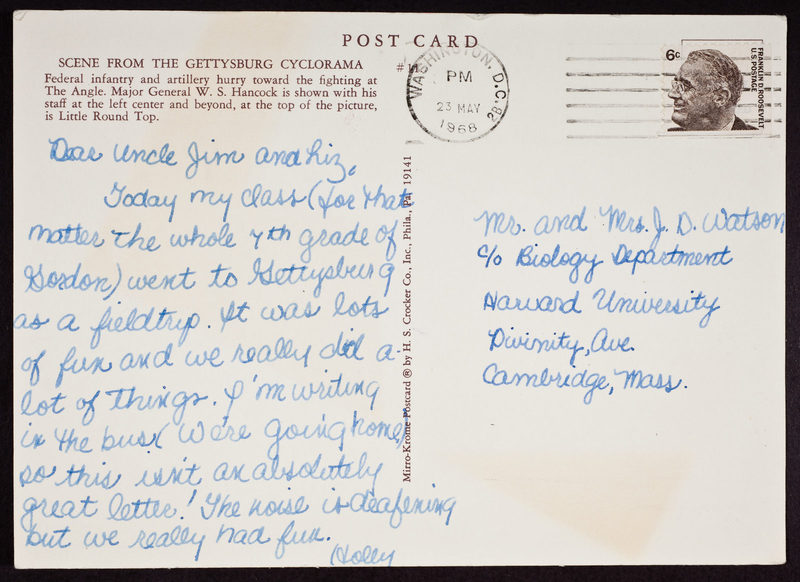 POST CARD
SCENE FROM THE GETTYSBURG CYCLORAMA
Federal infantry and artillery hurry toward the fighting at
The Angle. Major General W. S. Hancock is shown with his
staff at the left center and beyond, at the top of the picture,
is Little Round Top.
WASHINGTON, D.C.
PM
23 MAY
1968
6c
FRANKLIN D. ROOSEVELT
U.S. POSTAGE
Dear Uncle Jim and Liz,
Today my class (for that
matter the whole 7th grade of
Gordon) went to Gettysburg
as a fieldtrip. It was lots
of fun and we really did a
lot of things. I'm writing
in the bus (We're going home)
so this isn't an absolutely
great letter! The noise is deafening
but we really had fun.
Holly
Mirro-Krome Postcard ® by H. S. Crocker Co., Inc., Phila., Pa. 19141
Mr. and Mrs. J. D. Watson
c/o Biology Department
Harvard University
Divinity, Ave.
Cambridge, Mass.